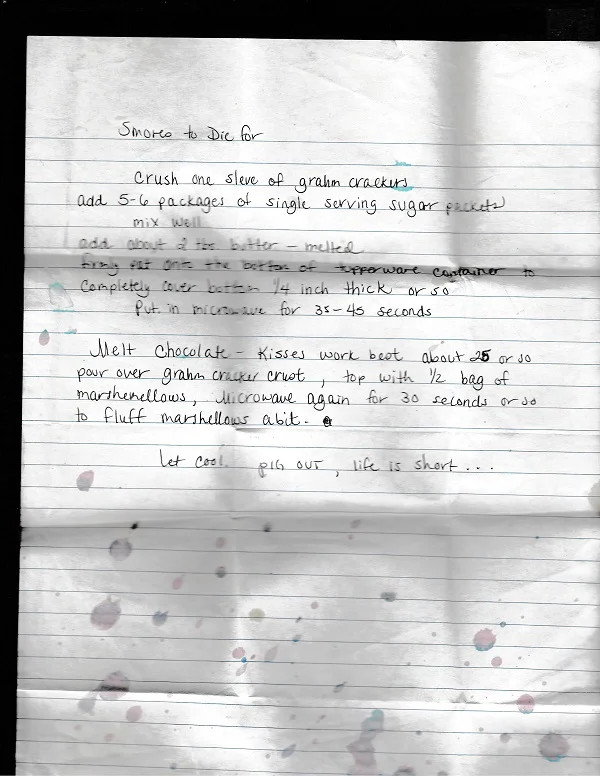 Smores to Die for
Crush one sleve of grahm crackers
add 5-6 packages of single serving sugar packets
mix well
add about 2 tbs butter - melted
firmly put onto the bottom of tupperware container to
completely cover bottom 1/4 inch thick or so
Put in microwave for 35-45 seconds
Melt Chocolate - Kisses work best about 25 or so
pour over grahm cracker crust, top with 1/2 bag of
marshemellows, Microwave again for 30 seconds or so
to fluff marshellows abit.
Let cool PIG OUT, life is short...